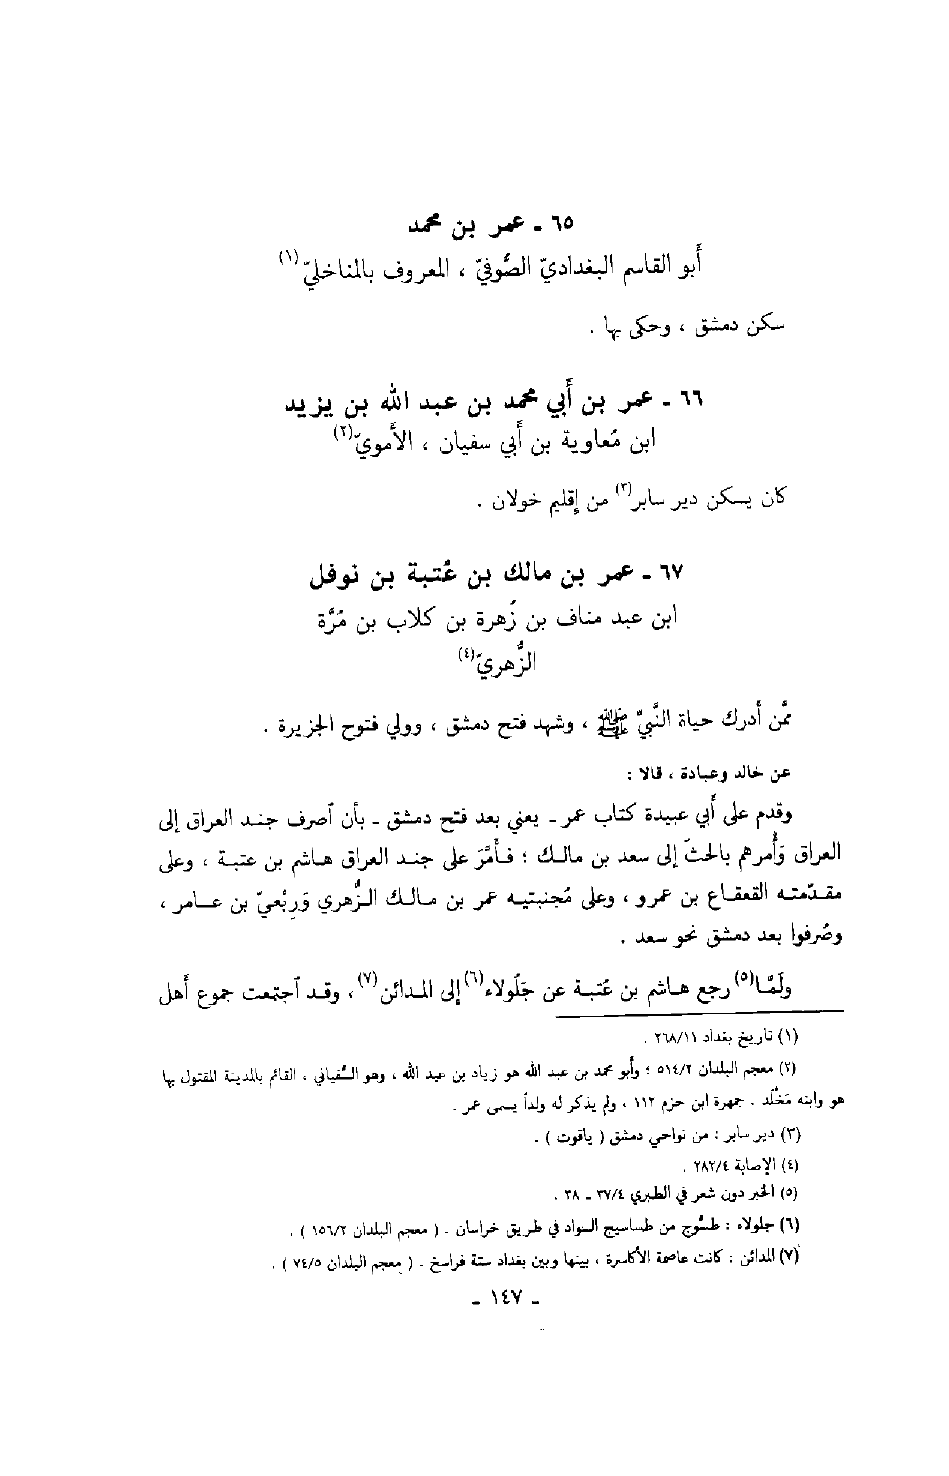 ٦٥ ـ عمر بن محمد
أبو القاسم البغداديّ الصُّوفيّ ، المعروف بالمناخليّ(١)
سكن دمشق ، وحكى بها .
٦٦ ـ عمر بن أبي محمد بن عبد الله بن يزيد
ابن مُعاوية بن أبي سفيان ، الأمويّ(٢)
كان يسكن دير سابر(٣) من إقليم خولان .
٦٧ ـ عمر بن مالك بن عُتبة بن نوفل
ابن عبد مناف بن زُهرة بن كلاب بن مُرَّة
الزُّهريّ(٤)
ممَّن أدرك حياة النَّبيّ ﷺ ، وشهد فتح دمشق ، وولي فتوح الجزيرة .
عن خالد وعبادة ، قالا :
وقدم على أبي عبيدة كتاب عمر ـ يعني بعد فتح دمشق ـ بأن اَصرف جند العراق إلى
العراق وَأْمرهم بالحثّ إلى سعد بن مالك ؛ فأمَّرَ على جند العراق هاشم بن عتبة ، وعلى
مقدّمته القعقاع بن عمرو ، وعلى مُجنبتيه عمر بن مالك الزُّهري وَرِبْعيّ بن عامر ،
وصُرفوا بعد دمشق نحو سعد .
ولَمَّا(٥) رجع هاشم بن عُتبة عن جَلُولاء(٦) إلى المدائن(٧) ، وقد اَجتمعت جموع أهل
(١) تاريخ بغداد ٢٦٨/١١ .
(٢) معجم البلدان ٥١٤/٢ ؛ وأبو محمد بن عبد الله هو زياد بن عبد الله ، وهو السُّفياني ، القائم بالمدينة المقتول بها
هو وابنه مَخْلَد . جمهرة ابن حزم ١١٢ ، ولم يذكر له ولداً يسمى عمر .
(٣) دير سابر : من نواحي دمشق ( ياقوت ) .
(٤) الإصابة ٢٨٢/٤ .
(٥) الخبر دون شعر في الطبري ٣٧/٤ ـ ٣٨ .
(٦) جلولاء : طسُّوج من طساسيج السواد في طريق خراسان . ( معجم البلدان ١٥٦/٢ ) .
(٧) المدائن : كانت عاصمة الأكاسرة ، بينها وبين بغداد ستة فراسخ . ( معجم البلدان ٧٤/٥ ) .
ـ ١٤٧ ـ